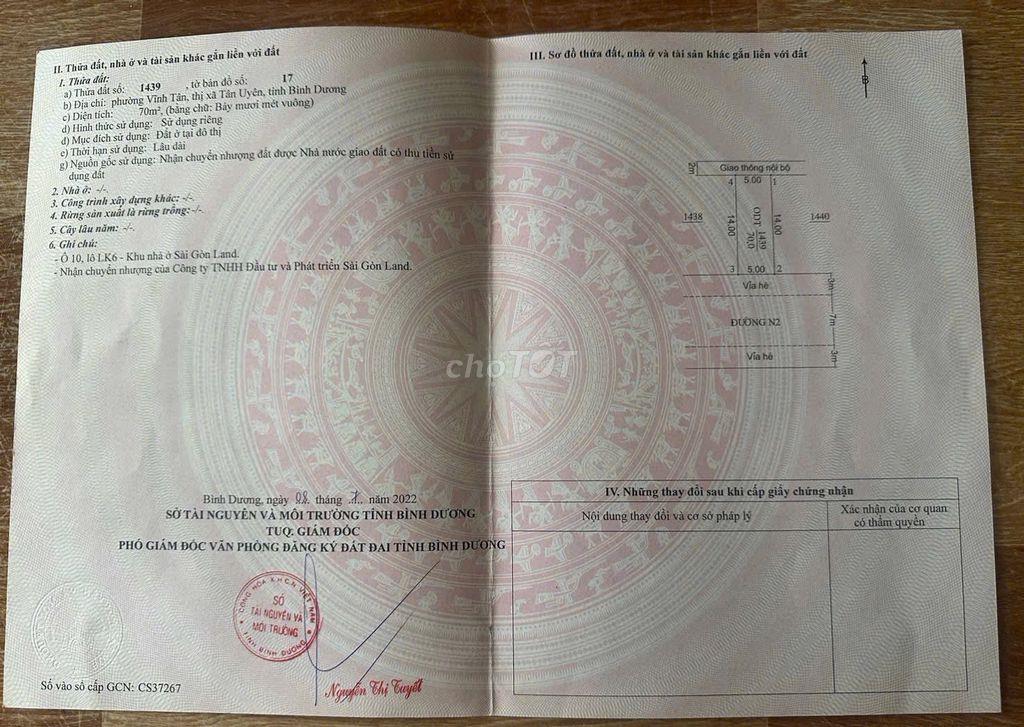 II. Thửa đất, nhà ở và tài sản khác gắn liền với đất
1. Thửa đất:
a) Thửa đất số: 1439 , tờ bản đồ số: 17
b) Địa chỉ: phường Vĩnh Tân, thị xã Tân Uyên, tỉnh Bình Dương
c) Diện tích: 70m², (bằng chữ: Bảy mươi mét vuông)
d) Hình thức sử dụng: Sử dụng riêng
đ) Mục đích sử dụng: Đất ở tại đô thị
e) Thời hạn sử dụng: Lâu dài
g) Nguồn gốc sử dụng: Nhận chuyển nhượng đất được Nhà nước giao đất có thu tiền sử
dụng đất
2. Nhà ở: -/-.
3. Công trình xây dựng khác: -/-.
4. Rừng sản xuất là rừng trồng: -/-.
5. Cây lâu năm: -/-.
6. Ghi chú:
- Ô 10, lô LK6 - Khu nhà ở Sài Gòn Land.
- Nhận chuyển nhượng của Công ty TNHH Đầu tư và Phát triển Sài Gòn Land.
Bình Dương, ngày 08 tháng 7 năm 2022
SỞ TÀI NGUYÊN VÀ MÔI TRƯỜNG TỈNH BÌNH DƯƠNG
TUQ. GIÁM ĐỐC
PHÓ GIÁM ĐỐC VĂN PHÒNG ĐĂNG KÝ ĐẤT ĐAI TỈNH BÌNH DƯƠNG
CỘNG HÒA X.H.C.N VIỆT NAM
SỞ
TÀI NGUYÊN VÀ
MÔI TRƯỜNG
TỈNH BÌNH DƯƠNG
Nguyễn Thị Tuyết
Số vào sổ cấp GCN: CS37267
III. Sơ đồ thửa đất, nhà ở và tài sản khác gắn liền với đất
B
2m
Giao thông nội bộ
4 5.00 1
1438
14.00
ODT 1439
70.0
14.00
1440
3 5.00 2
Vỉa hè
3m
ĐƯỜNG N2
7m
Vỉa hè
3m
choTOT
IV. Những thay đổi sau khi cấp giấy chứng nhận
Nội dung thay đổi và cơ sở pháp lý
Xác nhận của cơ quan
có thẩm quyền